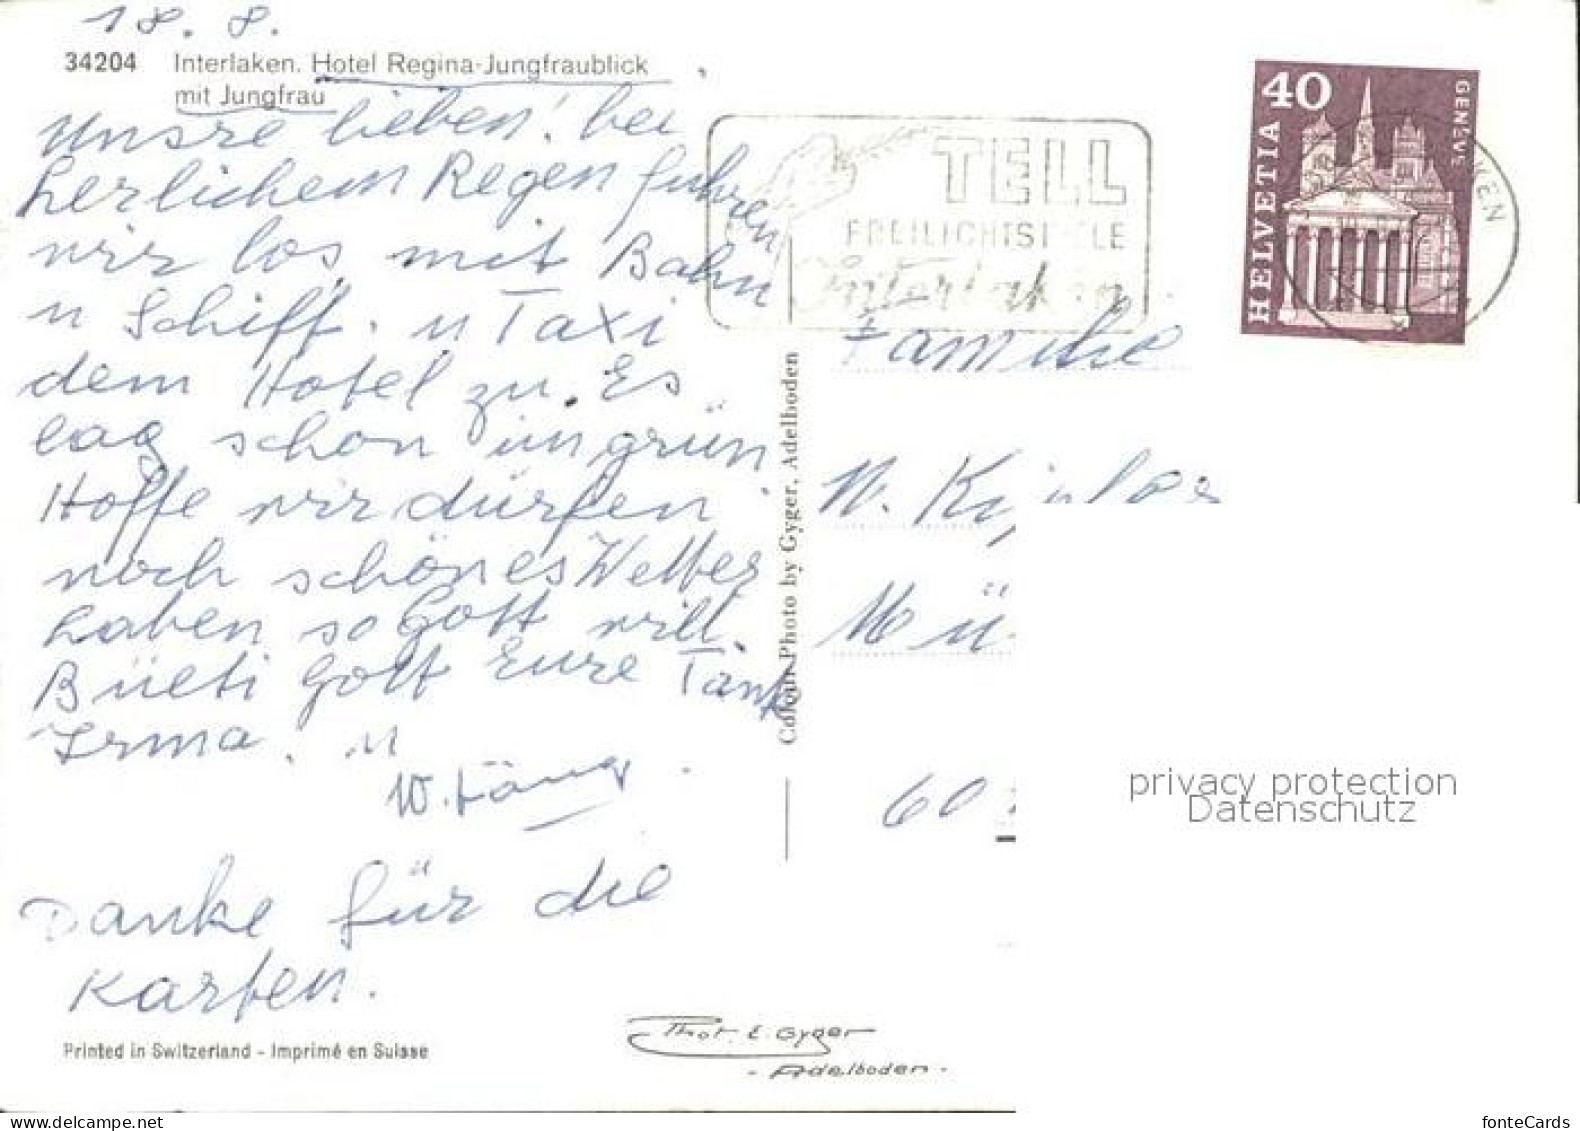 18. 8.
34204 Interlaken. Hotel Regina-Jungfraublick
mit Jungfrau
Unsre lieben! bei
herlichem Regen fuhren
wir los mit Bahn
u Schiff. u Taxi
dem Hotel zu. Es
lag schon im grün
Hoffe wir dürfen
noch schönes Wetter
haben so Gott will.
Büeti Gott Eure Tante
Irma. u
W.
Danke für die
Karten.
Printed in Switzerland - Imprimé en Suisse
Phot. E. Gyger
- Adelboden -
Colour Photo by Gyger, Adelboden
TELL
FREILICHTSPIELE
Interlaken
40
HELVETIA
GENÈVE
Familie
W.
Mü
60
privacy protection
Datenschutz
fonteCards